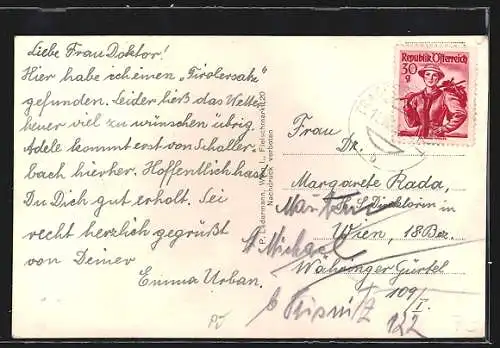 Liebe Frau Doktor!
Hier habe ich einen „Tirolersatz"
gefunden. Leider ließ das Wetter
heuer viel zu wünschen übrig.
Adele kommt erst von Schaller-
bach hierher. Hoffentlich hast
Du Dich gut erholt. Sei
recht herzlich gegrüßt
von Deiner
Emma Urban.
P. Ledermann, Wien I., Fleischmarkt 20
Nachdruck verboten
Republik Österreich
30
g
Frau
Dr.
Margarete Rada,
Direktorin in
Wien, 18 Bez.
St Michael
Währinger Gürtel
109/I.
122